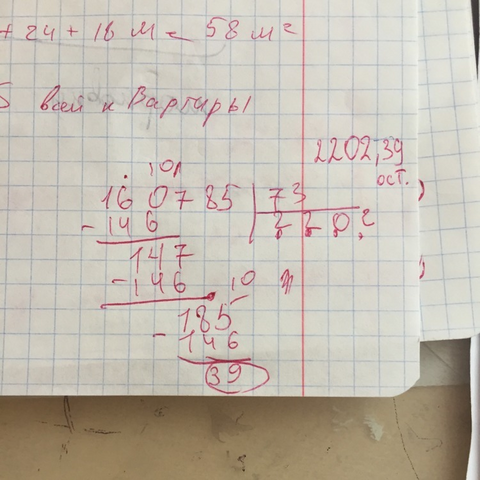 + 24 + 16 м = 58 м²
S всей квартиры
2202,39
ост.
10
160785 | 73
- 146 2202
147
- 146 10
185
- 146
39